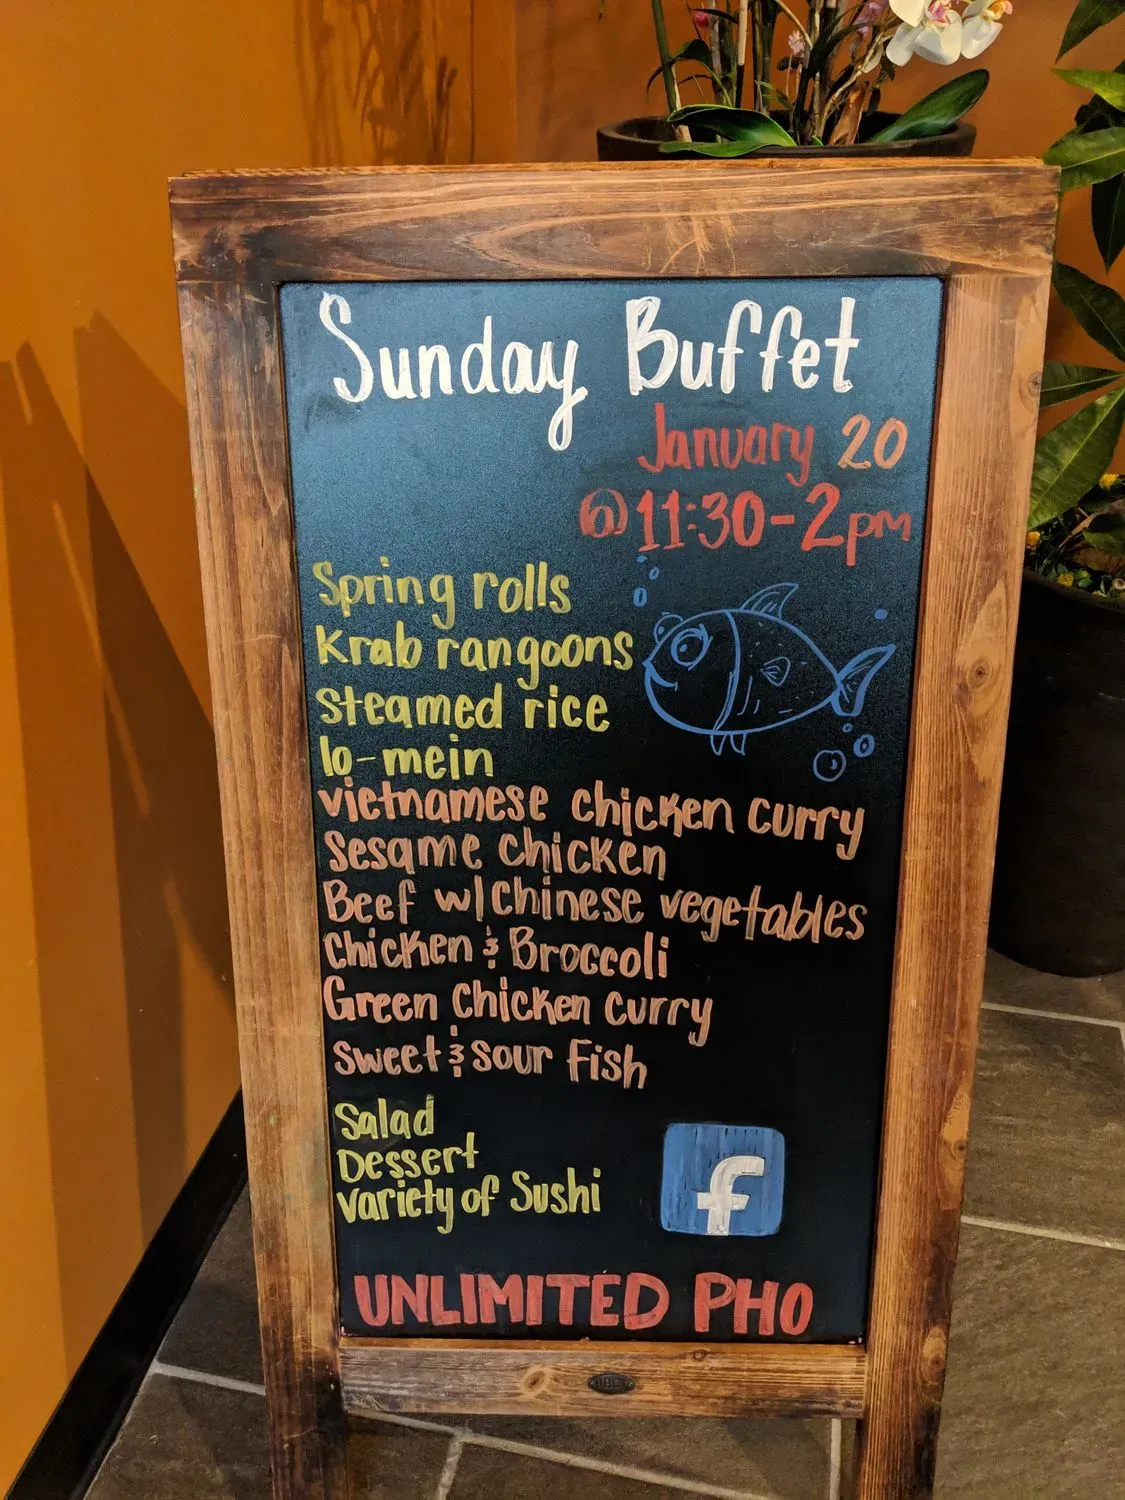 Sunday Buffet
January 20
@ 11:30-2pm
Spring rolls
Krab rangoons
Steamed rice
lo-mein
vietnamese chicken curry
Sesame chicken
Beef w/ Chinese vegetables
Chicken & Broccoli
Green Chicken curry
sweet & sour fish
Salad
Dessert
variety of Sushi
f
UNLIMITED PHO